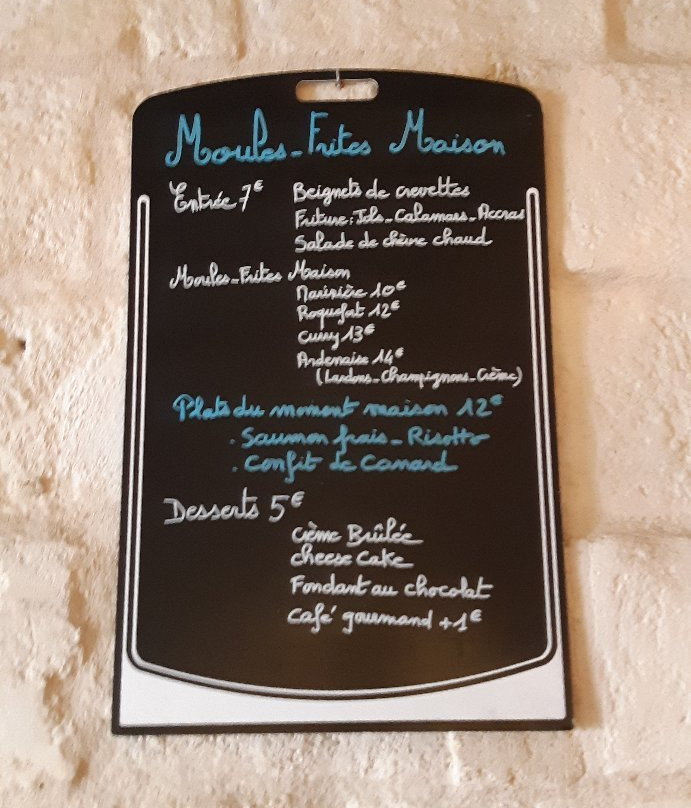 Moules-Frites Maison
Entrée 7€ Beignets de crevettes
Friture: Jols-Calamars-Accras
Salade de chèvre chaud
Moules-Frites Maison
Marinière 10€
Roquefort 12€
Curry 13€
Ardenaise 14€
(Lardons-Champignons-Crème)
Plats du moment maison 12€
. Saumon frais - Risotto
. Confit de Canard
Desserts 5€
Crème Brûlée
Cheese Cake
Fondant au chocolat
Café gourmand +1€